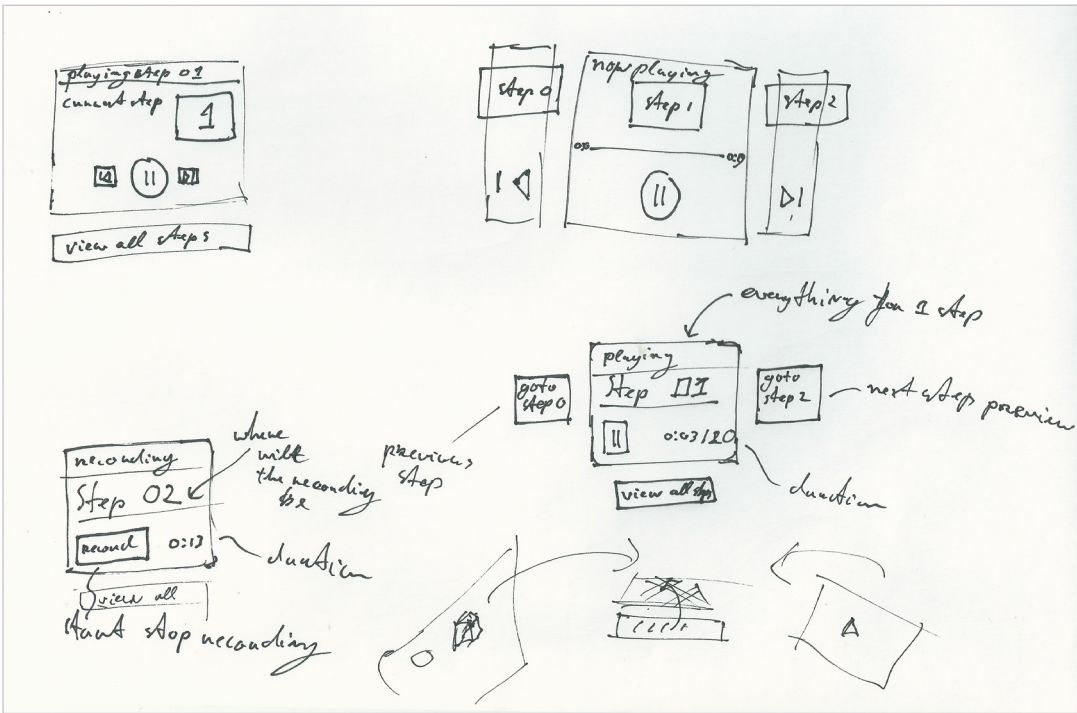 playing step 01
current step
1
view all steps
step 0
now playing
step 1
0:0
step 2
everything for 1 step
playing
Step 01
0:03/20
goto
step 0
goto
step 2
next step preview
previous
step
view all steps
duration
where
will
the recording
be
recording
Step 02
record
0:13
duration
view all
start stop recording